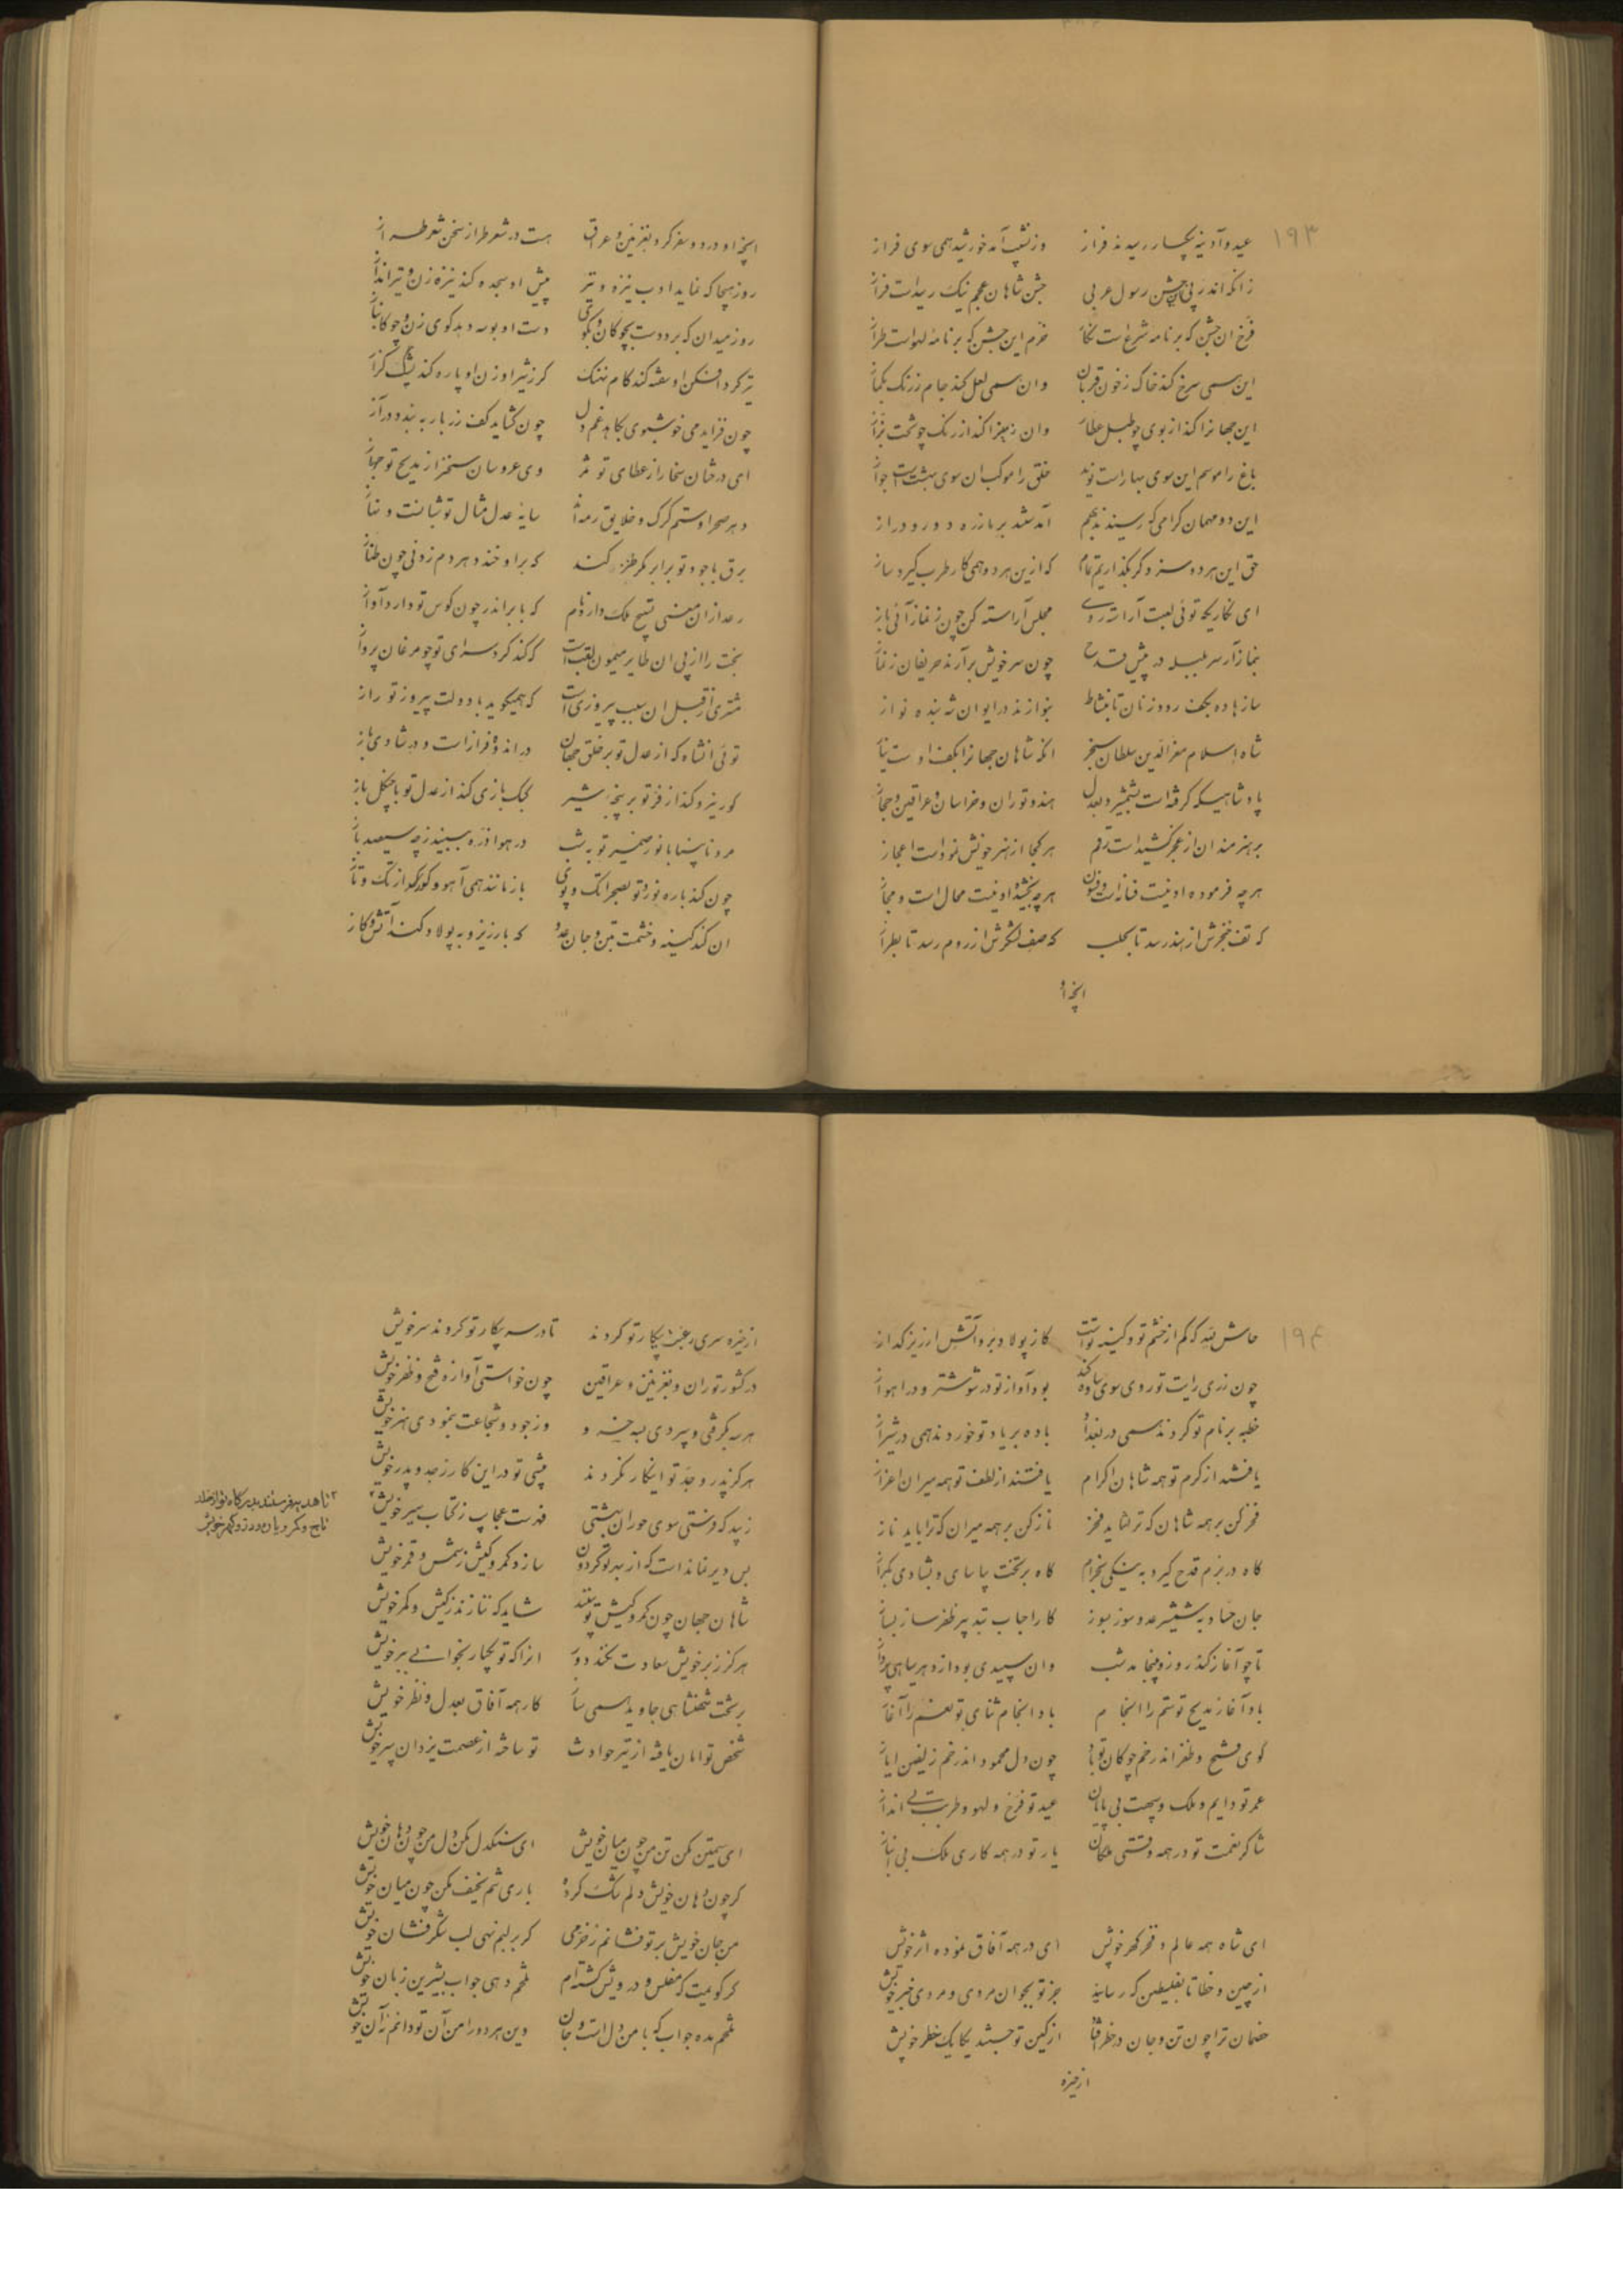 ۱۹۳
عید و آدینه بیکبار رسیدند فراز وز نشیب آمد خورشید همی سوی فراز
زانکه اندر پی این جشن رسول عربی جشن شاهان عجم نیک رسیدست فراز
فرخ ان جشن که بر نامه شرع است نگار خرم این جشن که بر نامه لهو است طراز
این همی سرخ کند خاک ز خون قربان وان همی لعل کند جام ز رنگ بکماز
این جهانرا کند از بوی چو طبل عطار وان زمین را کند از رنگ چو تخت بزاز
باغ را موسم این سوی بهار است نوید خلق را موکب ان سوی بهشت است جواز
این دو مهمان گرامی که رسیدند بهم آمدستند بر ما ز ره دور و دراز
حق این هر دو سزد گر بگذاریم تمام که ازین هر دو همی کار طرب گیرد ساز
ای نگاریکه توئی لعبت آراسته روی مجلس آراسته کن چون ز نماز آئی باز
بنماز آر سر بلبله در پیش قدح چون سر خویش برآرند حریفان ز نماز
ساز ها ده بکف رود زنان تا بنشاط بنوازند در ایوان شه بنده نواز
شاه اسلام معز الدین سلطان سنجر انکه شاهان جهانرا بکف اوست نیاز
پادشاهیکه گرفته است بشمشیر و بعدل هند و توران و خراسان و عراقین و حجاز
بر هنرمندان از عجز کشیدست رقم هر کجا از هنر خویش نمودست اعجاز
هرچه فرموده او نیست فسانه است و فسون هرچه بخشیده او نیست محال است و مجاز
که تف خنجرش از هند رسد تا بحلب که صف لشکرش از روم رسد تا بطراز
انچه او
انچه او در دو سفر کرد بغزنین و عراق هست در شعر طراز سخن شعر طراز
روز هیجا که نماید ادب نیزه و تیر پیش او سجده کند نیزه زن و تیرانداز
روز میدان که برد دست بچوگان و بگوی دست او بوسه دهد گوی زن و چوگان باز
تیر گرد افکن او سفته کند کام نهنگ گرز شیر اوزن او پاره کند یشک گراز
چون فزاید می خوشبوی بکاهد غم دل چون گشاید کف زربار ببندد در آز
ای درختان سخا را ز عطای تو ثمر وی عروسان سخن را ز مدیح تو جهاز
دهر صحرا و ستم گرگ و خلایق رمه‌اند سایه عدل مثال تو شبانست و نهاز
برق با جود تو برابر مگر طنز کند که برا و خندد هر دم زدنی چون طناز
رعد از ان معنی تسبیح ملک دارد نام که بابر اندر چون کوس تو دارد آواز
بخت را از پی ان طایر میمون لقب است که کند گرد سرای تو چو مرغان پرواز
مشتری از قبل ان سبب پیروزی است که همیگوید با دولت پیروز تو راز
توئی انشاه که از عدل تو بر خلق جهان در اندوه فراز است و در شادی باز
گور نیرو کند از فر تو بر پنجه شیر کبک بازی کند از عدل تو با چنگل باز
مرد نابینا با نور ضمیر تو بشب در هوا ذره ببیند ز چه سیصد باز
چون کند باره نورد تو بصحرا تک و پوی باز مانند همی آهو و گور از تک و تاز
ان کند کینه و خشمت بتن و جان عدو که بارزیز و به پولاد کند آتش و گاز
۱۹۴
حاش لله که کم از خشم تو و کینه تست گاز پولاد بر و آتش ارزیز گداز
چون زدی رایت تو روی سوی ساوه کند بود آواز تو در ششتر و در اهواز
خطبه بر نام تو کردند همی در بغداد باده بر یاد تو خوردند همی در شیراز
یافتند از کرم تو همه شاهان اکرام یافتند از لطف تو همه میران اعزاز
فخر کن بر همه شاهان که ترا شاید فخر ناز کن بر همه میران که ترا باید ناز
گاه در بزم قدح گیر و به نیکی بخرام گاه بر تخت بیاسای و بشادی بگراز
جان حساد بشمشیر عدو سوز بسوز کار احباب بتدبیر ظفر ساز بساز
تا چو آغاز کند روز و بینجامد شب وان سپیدی بود از دهر سیاهی پرداز
باد آغاز مدیح تو ستم را انجام باد انجام ثنای تو نعم را آغاز
گوی فتح و ظفر اندر خم چوگان تو باد چون دل محمود اندر خم زلفین ایاز
عمر تو دایم و ملک و سپهت بی پایان عید تو فرخ و لهو و طربت بی انداز
شاکر نعمت تو در همه وقتی ملکان یار تو در همه کاری ملک بی انباز
ای شاه همه عالم و فخر گهر خویش ای در همه آفاق نموده اثر خویش
از چین و خطا تا بفلسطین که رسانید جز تو بجوان مردی و مردی خبر خویش
خصمان ترا چون تن و جان در خطر افتاد از کین تو جستند یکایک خطر خویش
از خیره
از خیره سری رغبت پیکار تو کردند تا در سر پیکار تو کردند سر خویش
در کشور توران و بغزنین و عراقین چون خواستی آوازه فتح و ظفر خویش
هر سه بگرفتی و سپردی بسه خسرو وز جود و شجاعت بنمودی هنر خویش
هرگز پدر و جد تو اینکار نکردند پیشی تو در این کار ز جد و پدر خویش
زیبد که فرستی سوی حوران بهشتی فهرست عجایب ز کتاب سیر خویش ۲
بس دیر نماندست که از بهر تو گردون سازد کمر و کیش ز شمس و قمر خویش
شاهان جهان چون کمر و کیش تو بینند شاید که ننازند ز کیش و کمر خویش
هرگز ز بر خویش سعادت نکند دور انرا که تو یکبار بخوانی ببر خویش
بر تخت شهنشاهی جاوید همی ساز کار همه آفاق بعدل و نظر خویش
شخص تو امان یافته از تیر حوادث تو ساخته از عصمت یزدان سپر خویش
ای سیمتن مکن تن من چون میان خویش ای سنگدل مکن دل من چون دهان خویش
گر چون دهان خویش دلم تنگ کرده باری تنم نحیف مکن چون میان خویش
من جان خویش بر تو فشانم ز خرمی گر بر لبم نهی لب شکر فشان خویش
گر گویمت که مفلس و درویش گشته‌ام تلخم دهی جواب بشیرین زبان خویش
تلخم مده جواب که با من دل است و جان وین هر دو را من آن تو دانم نه آن خویش
۲ تا هدیه فرستند بدرگاه تو از خلد
تاج و کمر و یاره و در و گهر خویش